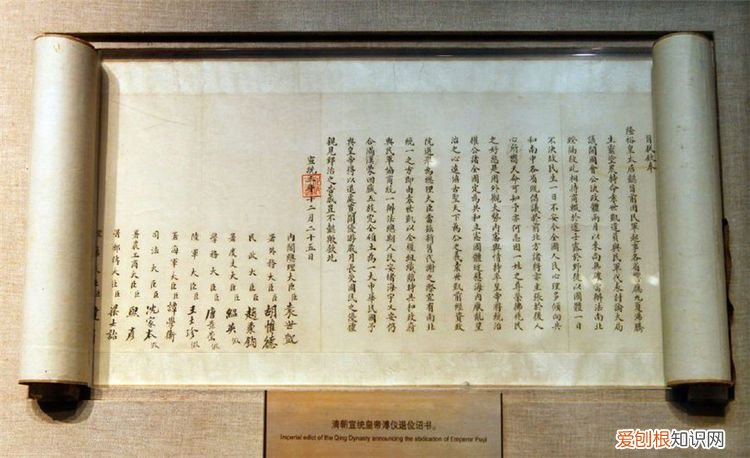 旨朕欽奉
隆裕皇太后懿旨前因民軍起事各省響應九夏沸騰
生靈塗炭特命袁世凱遣員與民軍代表討論大局
議開國會公決政體兩月以來尚無確當辦法南北
暌隔彼此相持商輟於途士露於野徒以國體一日
不決故民生一日不安今全國人民心理多傾向共
和南中各省既倡議於前北方諸將亦主張於後人
心所嚮天命可知予亦何忍因一姓之尊榮拂兆民
之好惡是用外觀大勢內審輿情特率皇帝將統治
權公諸全國定為共和立憲國體近慰海內厭亂望
治之心遠協古聖天下為公之義袁世凱前經資政
院選舉為總理大臣當茲新舊代謝之際宜有南北
統一之方即由袁世凱以全權組織臨時共和政府
與民軍協商統一辦法總期人民安堵海宇乂安仍
合滿漢蒙回藏五族完全領土為一大中華民國予
與皇帝得以退處寬閒優游歲月長受國民之優禮
親見郅治之告成豈不懿歟欽此
宣統三年十二月二十五日
內閣總理大臣袁世凱
署外務大臣胡惟德
民政大臣趙秉鈞
署度支大臣紹英假
學務大臣唐景崇假
陸軍大臣王士珍假
署海軍大臣譚學衡
司法大臣沈家本假
署農工商大臣熙彥
署郵傳大臣梁士詒
清朝宣统皇帝溥仪退位诏书。
Imperial edict of the Qing Dynasty announcing the abdication of Emperor Puyi
爱刨根知识网